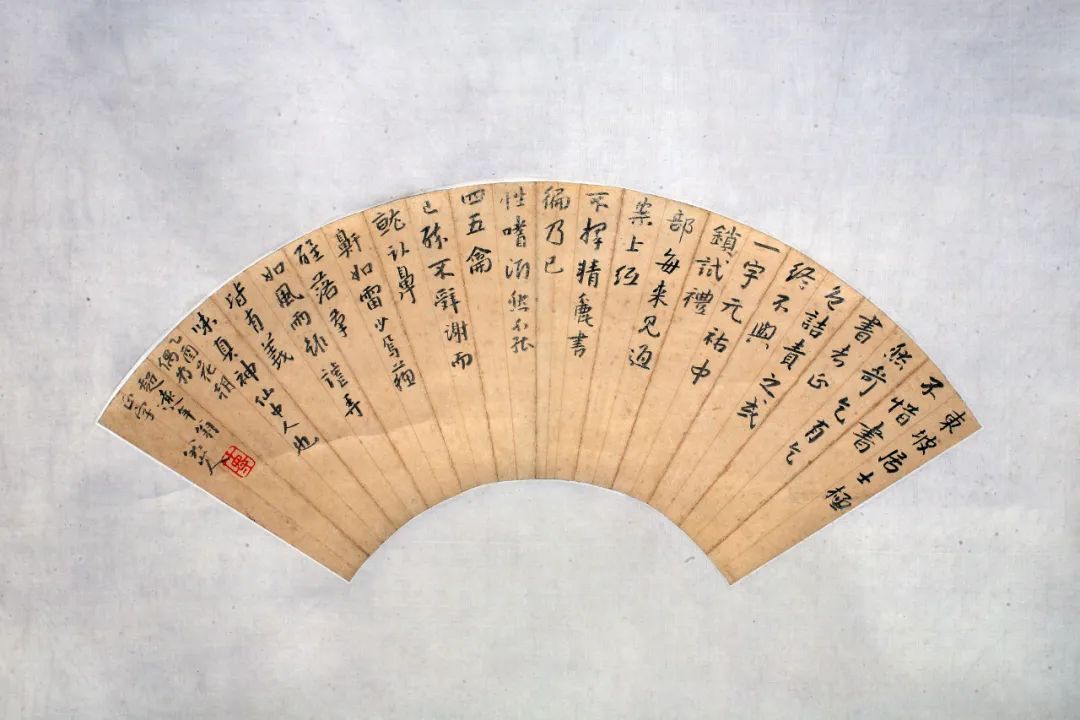 東坡居士極
不惜書
然不可乞有乞
書者正
色詰責之或
終不與
一字元祐中
鎖試禮
部每來見過
案上紙
不擇精麄書
徧乃已
性嗜酒然不能
四五龠
已醉不辭謝而
就臥鼻
鼾如雷少焉蘇
醒落筆
如風雨雖謔弄
皆有義
味真神仙中人也
乙酉花朝
偶為
年翁
正字